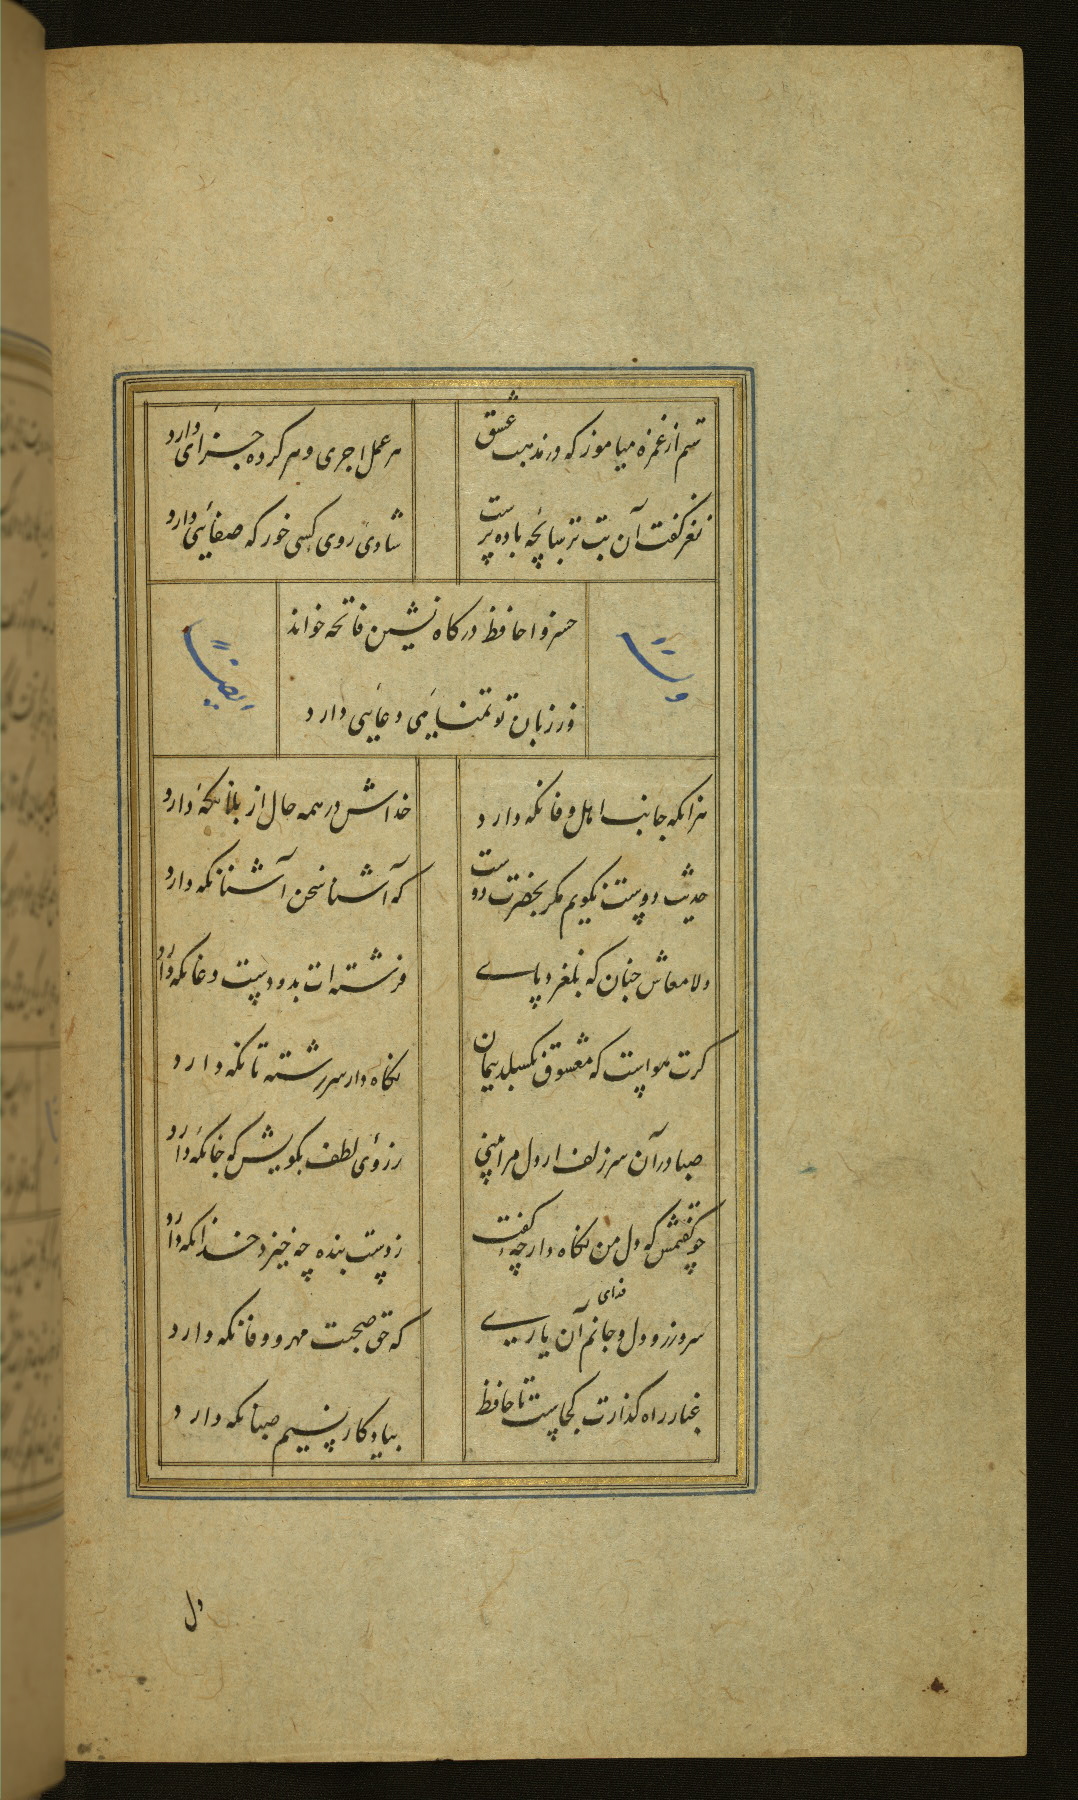 ستم از غمزه میاموز که در مذهب عشق
هر عمل اجری و هر کرده جزائی دارد
نغز گفت آن بت ترسابچه باده پرست
شادی روی کسی خور که صفائی دارد
خسروا حافظ درگاه نشین فاتحه خواند
وز زبان تو تمنای دعایی دارد
وله ایضاً
هر آنکه جانب اهل وفا نگه دارد
خداش در همه حال از بلا نگه دارد
حدیث دوست نگویم مگر بحضرت دوست
که آشنا سخن آشنا نگه دارد
دلا معاش چنان که بلغزد پای
فرشته ات بدو دست دعا نگه دارد
گرت هواست که معشوق نکسلد پیمان
نگاه دار سر رشته تا نگه دارد
صبا در آن سر زلف ار دل مرا بینی
ز روی لطف بگویش که جا نگه دارد
چو گفتمش که دل من نگاه دار چه گفت
ز دست بنده چه خیزد خدا نگه دارد
سر و زر و دل و جانم فدای آن یاری
که حق صحبت مهر و وفا نگه دارد
غبار راه گذارت کجاست تا حافظ
بیادگار نسیم صبا نگه دارد
دل